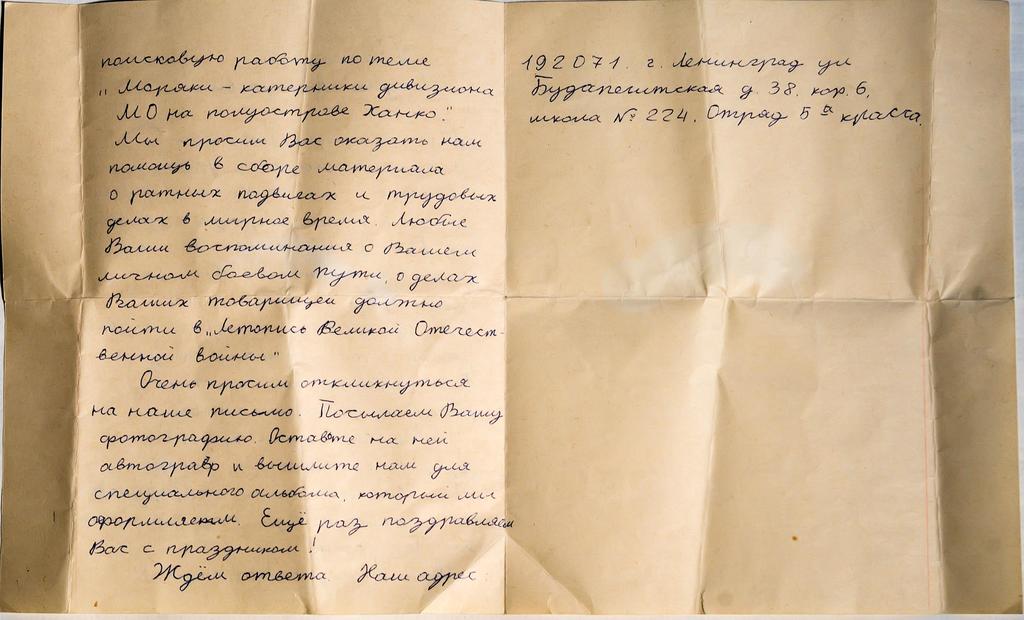 поисковую работу по теме
„Моряки – катерники дивизиона
МО на полуострове Ханко."
Мы просим Вас оказать нам
помощь в сборе материала
о ратных подвигах и трудовых
делах в мирное время. Любые
Ваши воспоминания о Вашем
личном боевом пути, о делах
Ваших товарищей должно
пойти в „Летопись Великой Отечест-
венной войны"
Очень просим откликнуться
на наше письмо. Посылаем Вашу
фотографию. Оставьте на ней
автограф и вышлите нам для
специального альбома, который мы
оформляем. Ещё раз поздравляем
Вас с праздником!
Ждём ответа. Наш адрес:
192071. г. Ленинград ул
Будапештская д. 38. кор. 6,
школа № 224. Отряд 5 а класса.